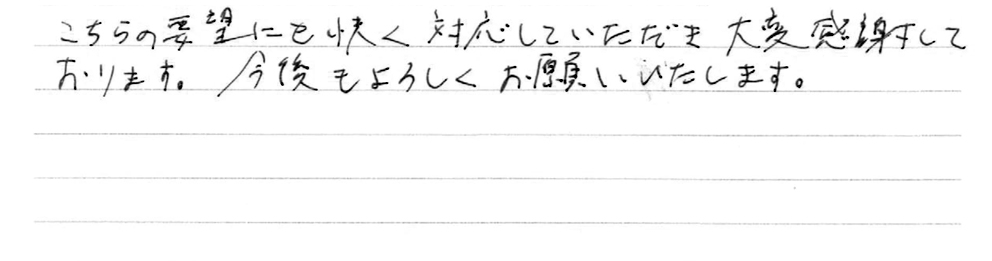 こちらの要望にも快く対応していただき大変感謝して
おります。今後もよろしくお願いいたします。